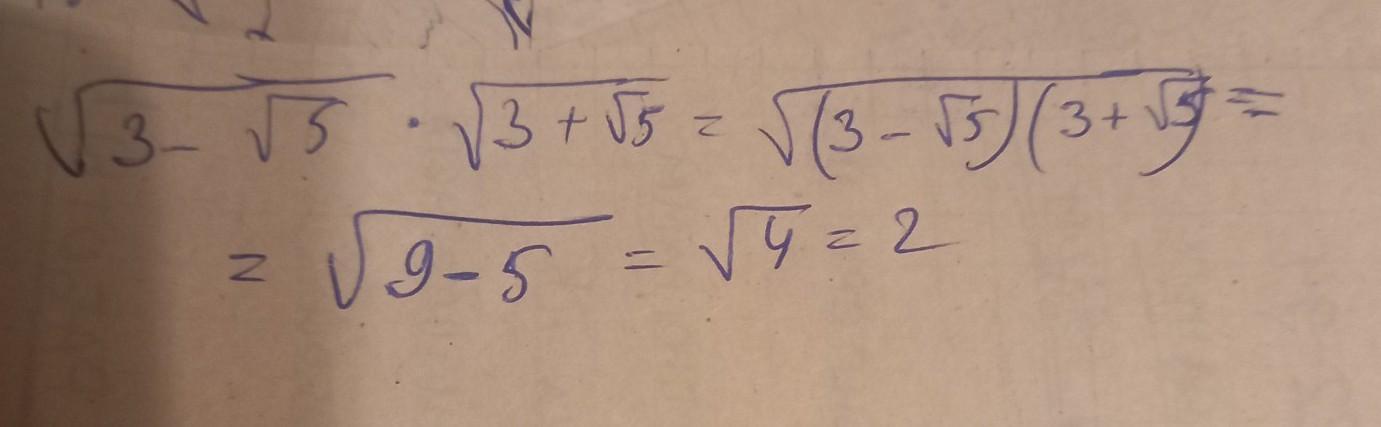 √(3 - √5) · √(3 + √5) = √((3 - √5)(3 + √5)) =
= √(9 - 5) = √4 = 2